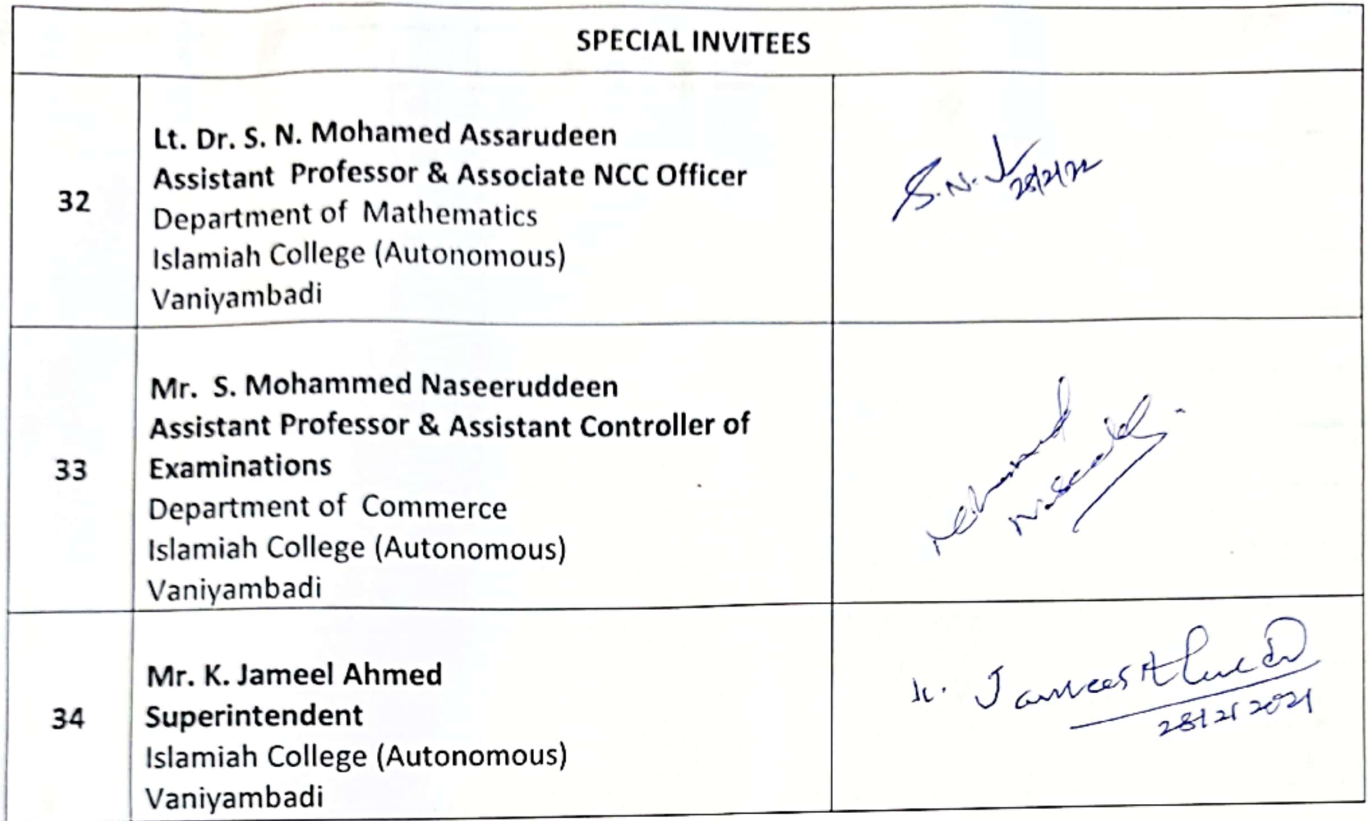 SPECIAL INVITEES
32
Lt. Dr. S. N. Mohamed Assarudeen
Assistant Professor & Associate NCC Officer
Department of Mathematics
Islamiah College (Autonomous)
Vaniyambadi
S.N.
28/2/22
33
Mr. S. Mohammed Naseeruddeen
Assistant Professor & Assistant Controller of
Examinations
Department of Commerce
Islamiah College (Autonomous)
Vaniyambadi
34
Mr. K. Jameel Ahmed
Superintendent
Islamiah College (Autonomous)
Vaniyambadi
K. Jameel Ahmed
28/2/2021